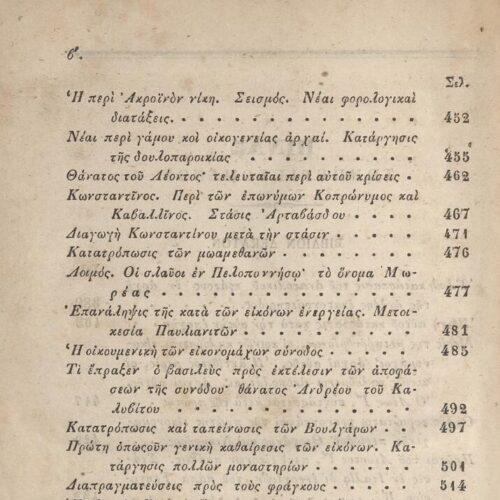 β'.
Σελ.
Ἡ περὶ Ἀκροϊνὸν νίκη. Σεισμός. Νέαι φορολογικαὶ
διατάξεις. . . . . . . . . . . . . 452
Νέαι περὶ γάμου κοὶ οἰκογενείας ἀρχαί. Κατάργησις
τῆς δουλοπαροικίας . . . . . . . . . 455
Θάνατος τοῦ Λέοντος· τελευταῖαι περὶ αὐτοῦ κρίσεις . 462
Κωνσταντῖνος. Περὶ τῶν ἐπωνύμων Κοπρώνυμος καὶ
Καβαλλῖνος. Στάσις Ἀρταβάσδου . . . . . 467
Διαγωγὴ Κωνσταντίνου μετὰ τὴν στάσιν . . . . 471
Κατατρόπωσις τῶν μωαμεθανῶν . . . . . . 476
Λοιμός. Οἱ σλαῦοι ἐν Πελοποννήσῳ· τὸ ὄνομα Μω-
ρέας . . . . . . . . . . . . . . 477
Ἐπανάληψις τῆς κατὰ τῶν εἰκόνων ἐνεργείας. Μετοι-
κεσία Παυλιανιτῶν . . . . . . . . . 481
Ἡ οἰκουμενικὴ τῶν εἰκονομάχων σύνοδος . . . . 485
Τί ἔπραξεν ὁ βασιλεὺς πρὸς ἐκτέλεσιν τῶν ἀποφά-
σεων τῆς συνόδου· θάνατος Ἀνδρέου τοῦ Κα-
λυβίτου . . . . . . . . . . . . . 492
Κατατρόπωσις καὶ ταπείνωσις τῶν Βουλγάρων . . 497
Πρώτη ὁπωσοῦν γενικὴ καθαίρεσις τῶν εἰκόνων. Κα-
τάργησις πολλῶν μοναστηρίων . . . . . . 501
Διαπραγματεύσεις πρὸς τοὺς φράγκους . . . . 514